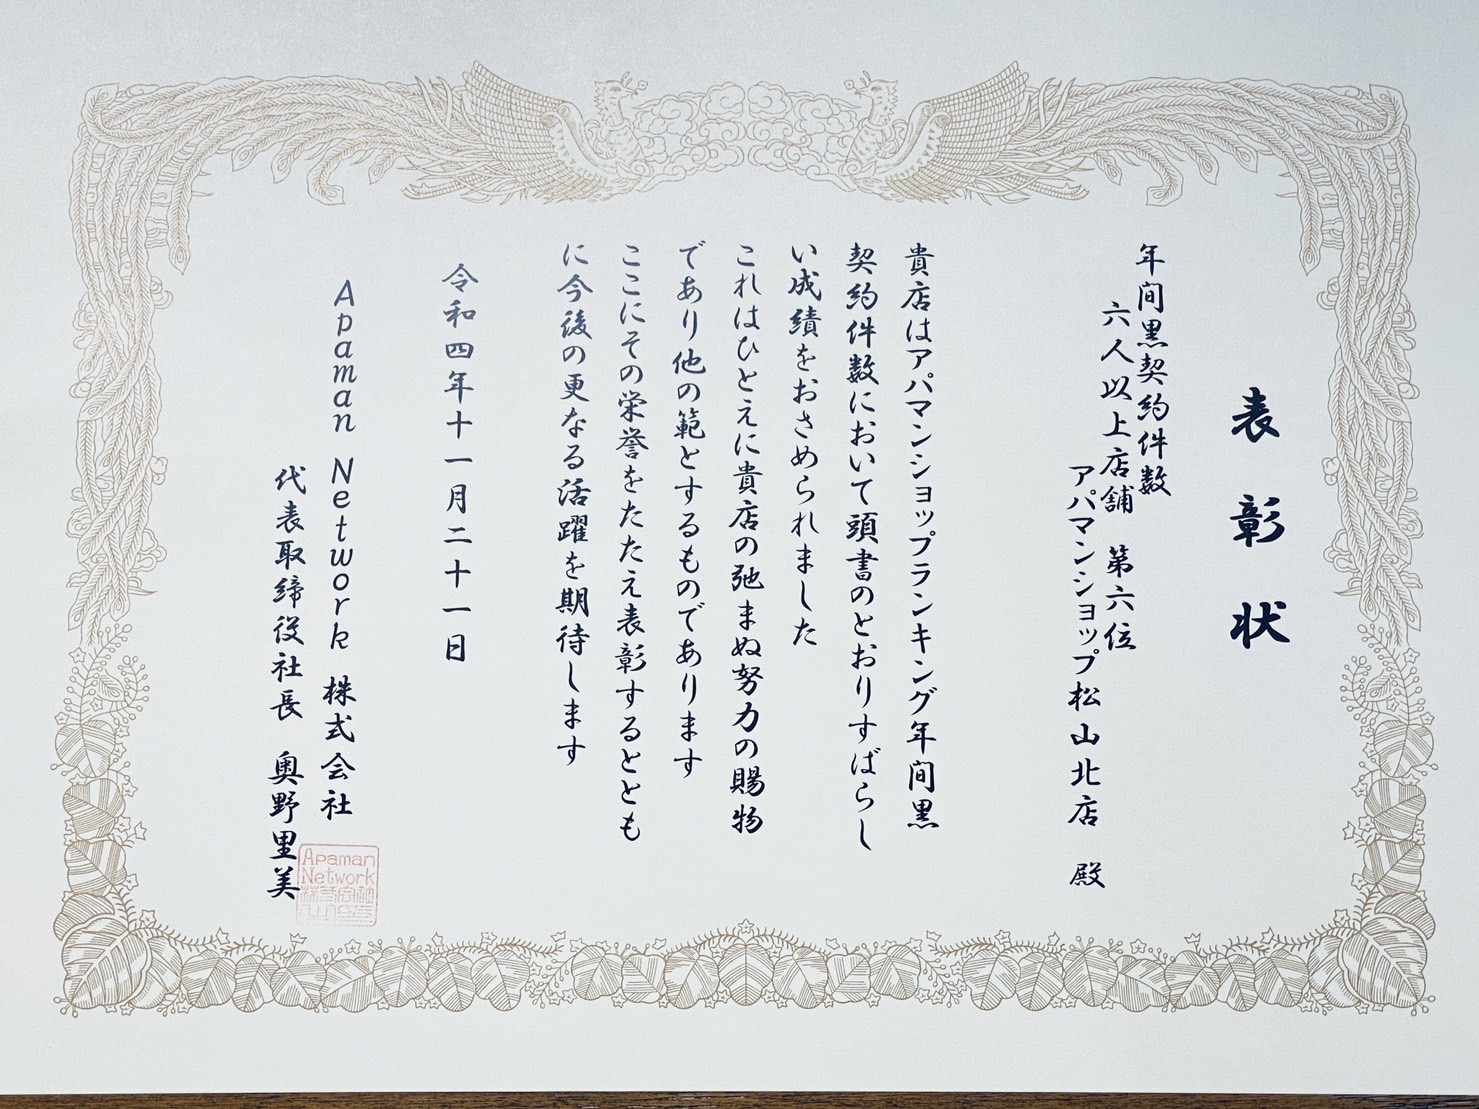 表彰状
年間黒契約件数
六人以上店舗 第六位
アパマンショップ松山北店 殿
貴店はアパマンショップランキング年間黒
契約件数において頭書のとおりすばらし
い成績をおさめられました
これはひとえに貴店の弛まぬ努力の賜物
であり他の範とするものであります
ここにその栄誉をたたえ表彰するととも
に今後の更なる活躍を期待します
令和四年十一月二十一日
Apaman Network 株式会社
代表取締役社長 奥野里美
Apaman
Network